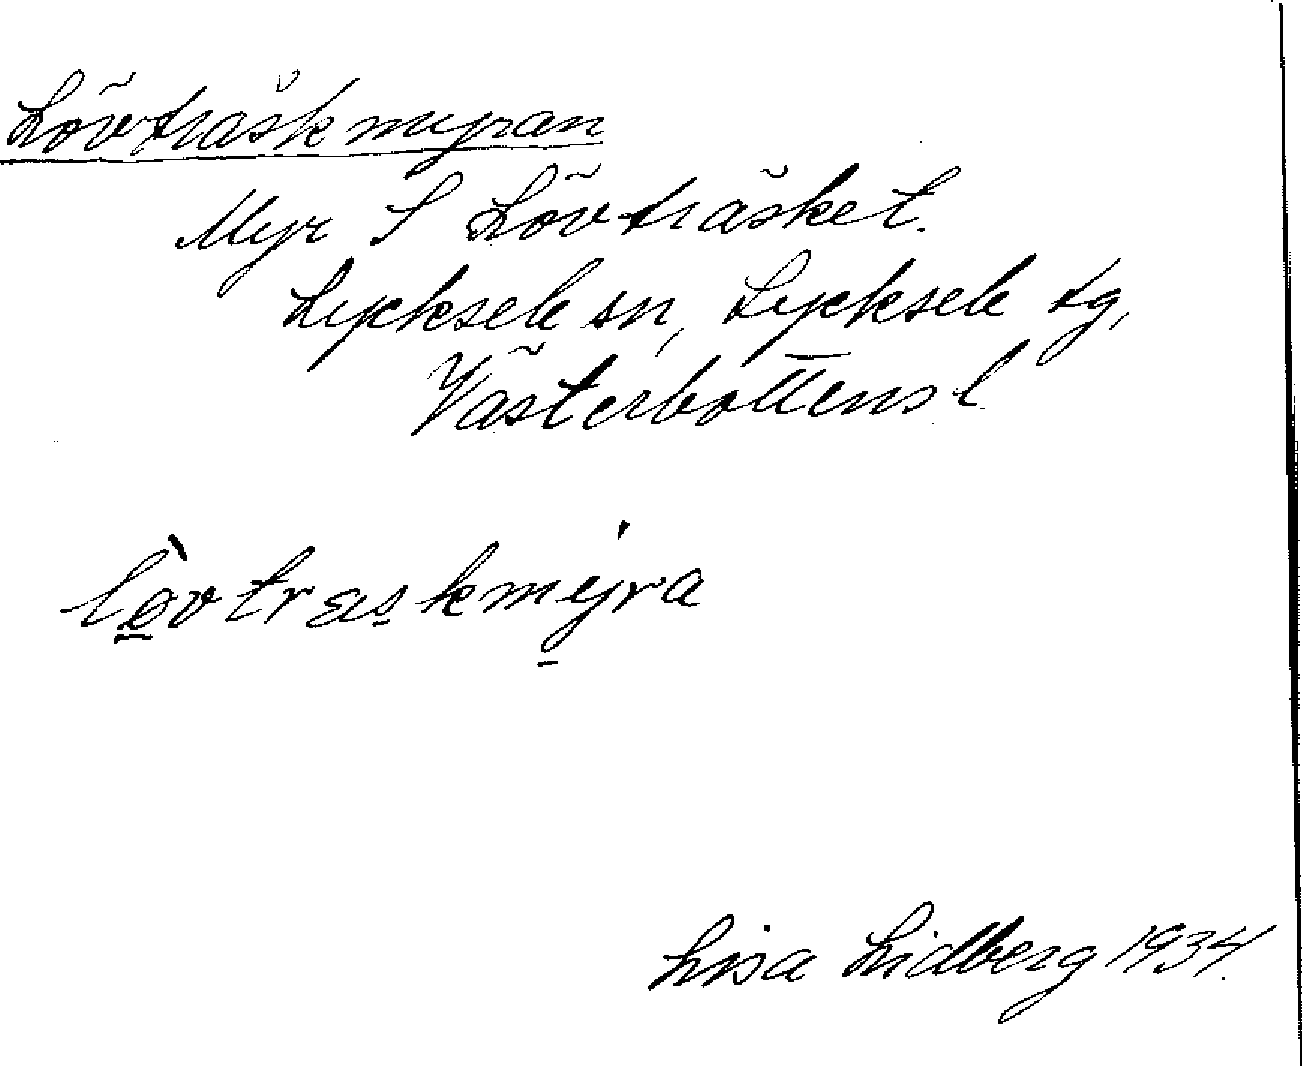 Lövträskmyran
Myr S Lövträsket.
Lycksele sn, Lycksele lg,
Västerbottens l
lòvtræskmy̍ra
Lisa Lidberg 1934.